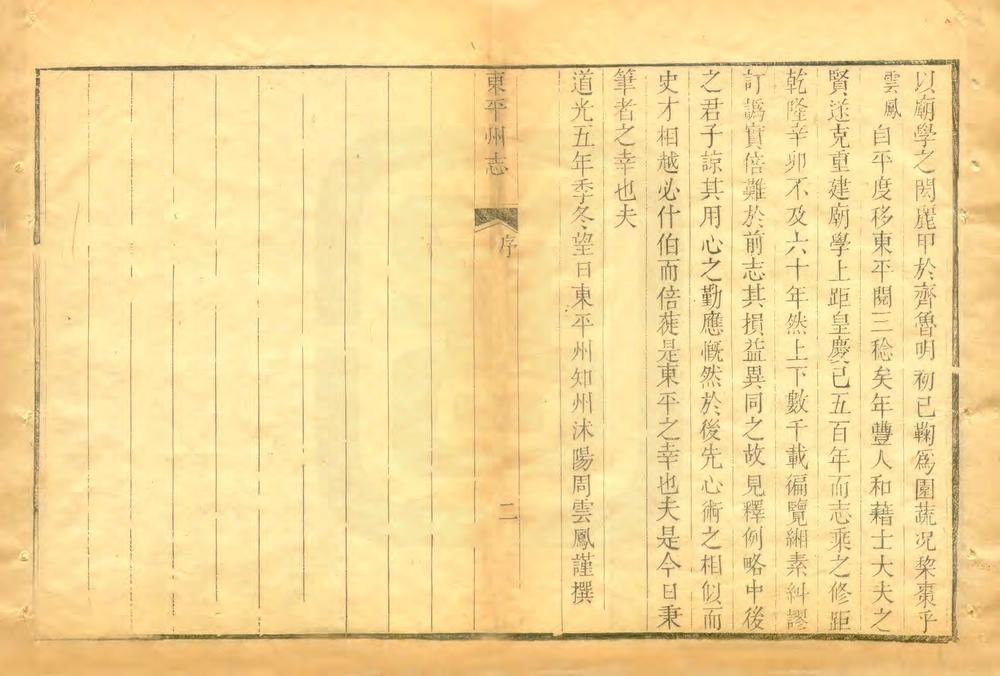 以廟學之閎麗甲於齊魯明初已鞠爲園蔬况棃棗乎
雲鳳自平度移東平閱三稔矣年豐人和藉士大夫之
賢遂克重建廟學上距皇慶已五百年而志乘之修距
乾隆辛卯不及六十年然上下數千載徧覽緗素糾謬
訂譌實倍難於前志其損益異同之故見釋例略中後
之君子諒其用心之勤應慨然於後先心術之相似而
史才相越必什伯而倍蓰是東平之幸也夫是今日秉
筆者之幸也夫
道光五年季冬望日東平州知州沭陽周雲鳳謹撰
東平州志
序
二